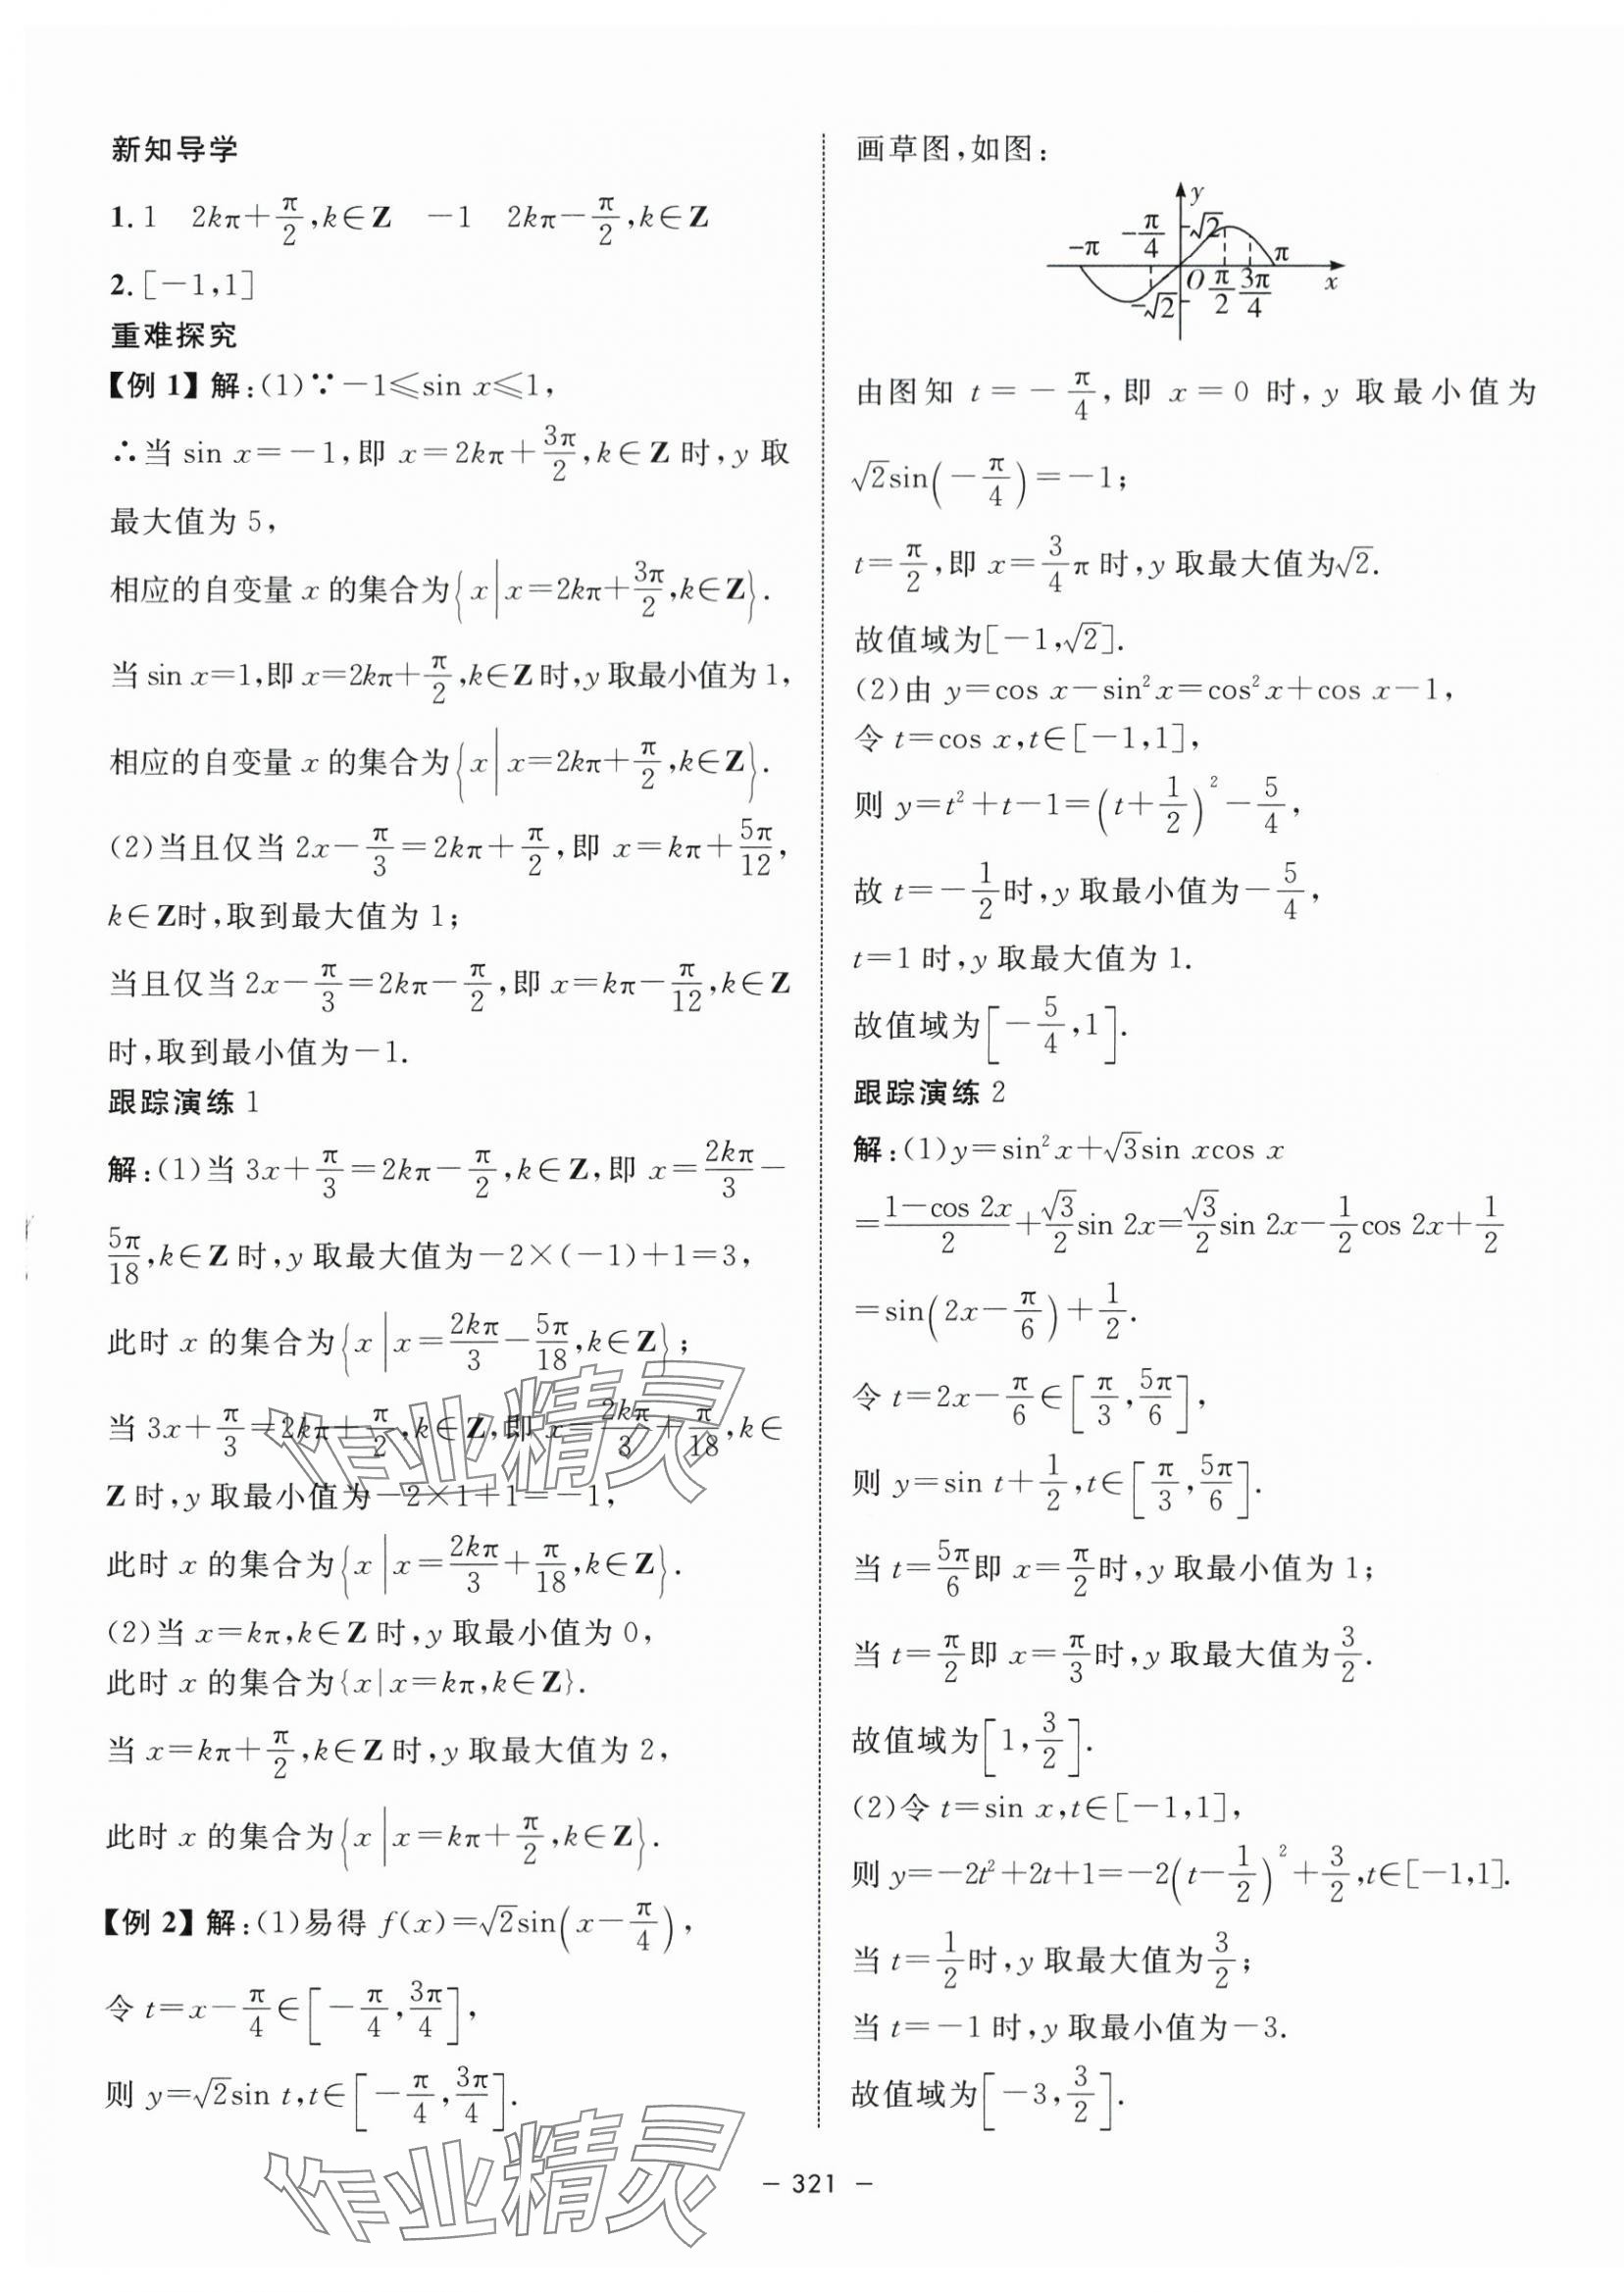 新知导学
1. 1 2kπ+π/2,k∈Z -1 2kπ-π/2,k∈Z
2. [-1,1]
重难探究
【例 1】解:(1)∵-1≤sin x≤1,
∴当 sin x=-1,即 x=2kπ+3π/2,k∈Z 时,y 取
最大值为 5,
相应的自变量 x 的集合为{x|x=2kπ+3π/2,k∈Z}.
当 sin x=1,即 x=2kπ+π/2,k∈Z 时,y 取最小值为 1,
相应的自变量 x 的集合为{x|x=2kπ+π/2,k∈Z}.
(2)当且仅当 2x-π/3=2kπ+π/2,即 x=kπ+5π/12,
k∈Z时,取到最大值为 1;
当且仅当 2x-π/3=2kπ-π/2,即 x=kπ-π/12,k∈Z
时,取到最小值为-1.
跟踪演练 1
解:(1)当 3x+π/3=2kπ-π/2,k∈Z,即 x=2kπ/3-
5π/18,k∈Z 时,y 取最大值为-2×(-1)+1=3,
此时 x 的集合为{x|x=2kπ/3-5π/18,k∈Z};
当 3x+π/3=2kπ+π/2,k∈Z,即 x=2kπ/3+π/18,k∈
Z 时,y 取最小值为-2×1+1=-1,
此时 x 的集合为{x|x=2kπ/3+π/18,k∈Z}.
(2)当 x=kπ,k∈Z 时,y 取最小值为 0,
此时 x 的集合为{x|x=kπ,k∈Z}.
当 x=kπ+π/2,k∈Z 时,y 取最大值为 2,
此时 x 的集合为{x|x=kπ+π/2,k∈Z}.
【例 2】解:(1)易得 f(x)=√2sin(x-π/4),
令 t=x-π/4∈[-π/4,3π/4],
则 y=√2sin t,t∈[-π/4,3π/4].
画草图,如图:
y
-π -π/4 √2 π
O π/2 3π/4 x
-√2
由图知 t=-π/4,即 x=0 时,y 取最小值为
√2sin(-π/4)=-1;
t=π/2,即 x=3/4π 时,y 取最大值为√2.
故值域为[-1,√2].
(2)由 y=cos x-sin²x=cos²x+cos x-1,
令 t=cos x,t∈[-1,1],
则 y=t²+t-1=(t+1/2)²-5/4,
故 t=-1/2时,y 取最小值为-5/4,
t=1 时,y 取最大值为 1.
故值域为[-5/4,1].
跟踪演练 2
解:(1)y=sin²x+√3sin xcos x
=(1-cos 2x)/2+√3/2sin 2x=√3/2sin 2x-1/2cos 2x+1/2
=sin(2x-π/6)+1/2.
令 t=2x-π/6∈[π/3,5π/6],
则 y=sin t+1/2,t∈[π/3,5π/6].
当 t=5π/6即 x=π/2时,y 取最小值为 1;
当 t=π/2即 x=π/3时,y 取最大值为3/2.
故值域为[1,3/2].
(2)令 t=sin x,t∈[-1,1],
则 y=-2t²+2t+1=-2(t-1/2)²+3/2,t∈[-1,1].
当 t=1/2时,y 取最大值为3/2;
当 t=-1 时,y 取最小值为-3.
故值域为[-3,3/2].
作业精灵
作业精灵
- 321 -